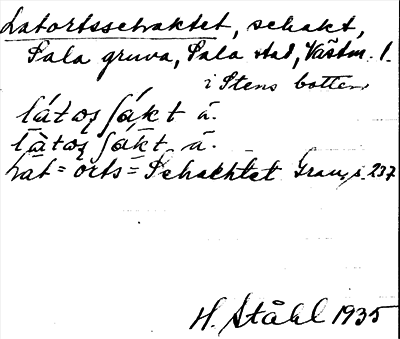 Latortsschaktet, schakt,
Sala gruva, Sala stad, Västm. l.
i Stens botten
låtoʂ ʃák̄t ä.
l̄àtoʂ ʃák̄t ä.
Lat=orts=Schachtet Grau, s. 237
H. Ståhl 1935